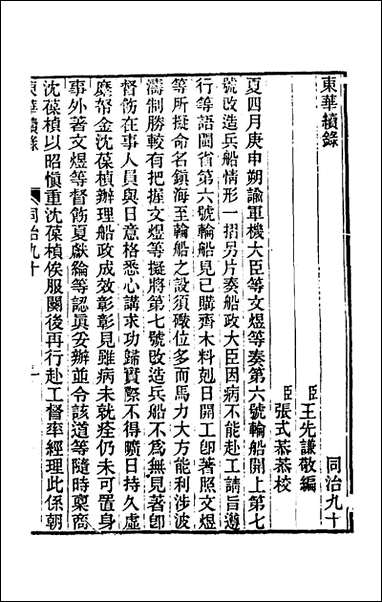 東華續錄
同治九十
臣王先謙敬編
臣張式恭恭校
夏四月庚申朔諭軍機大臣等文煜等奏第六號輪船開上第七
號改造兵船情形一摺另片奏船政大臣因病不能赴工請旨遵
行等語閩省第六號輪船見已購齊木料剋日開工卽著照文煜
等所擬命名鎮海至輪船之設須礮位多而馬力大方能利涉波
濤制勝較有把握文煜等擬將第七號改造兵船不爲無見著卽
督飭在事人員與日意格悉心講求功歸實際不得曠日持久虛
糜帑金沈葆楨辦理船政成效彰彰見雖病未就痊仍未可置身
事外著文煜等督飭夏獻綸等認眞妥辦並令該道等隨時稟商
沈葆楨以昭愼重沈葆楨俟服闋後再行赴工督率經理此係朝
東華續錄
同治九十
一